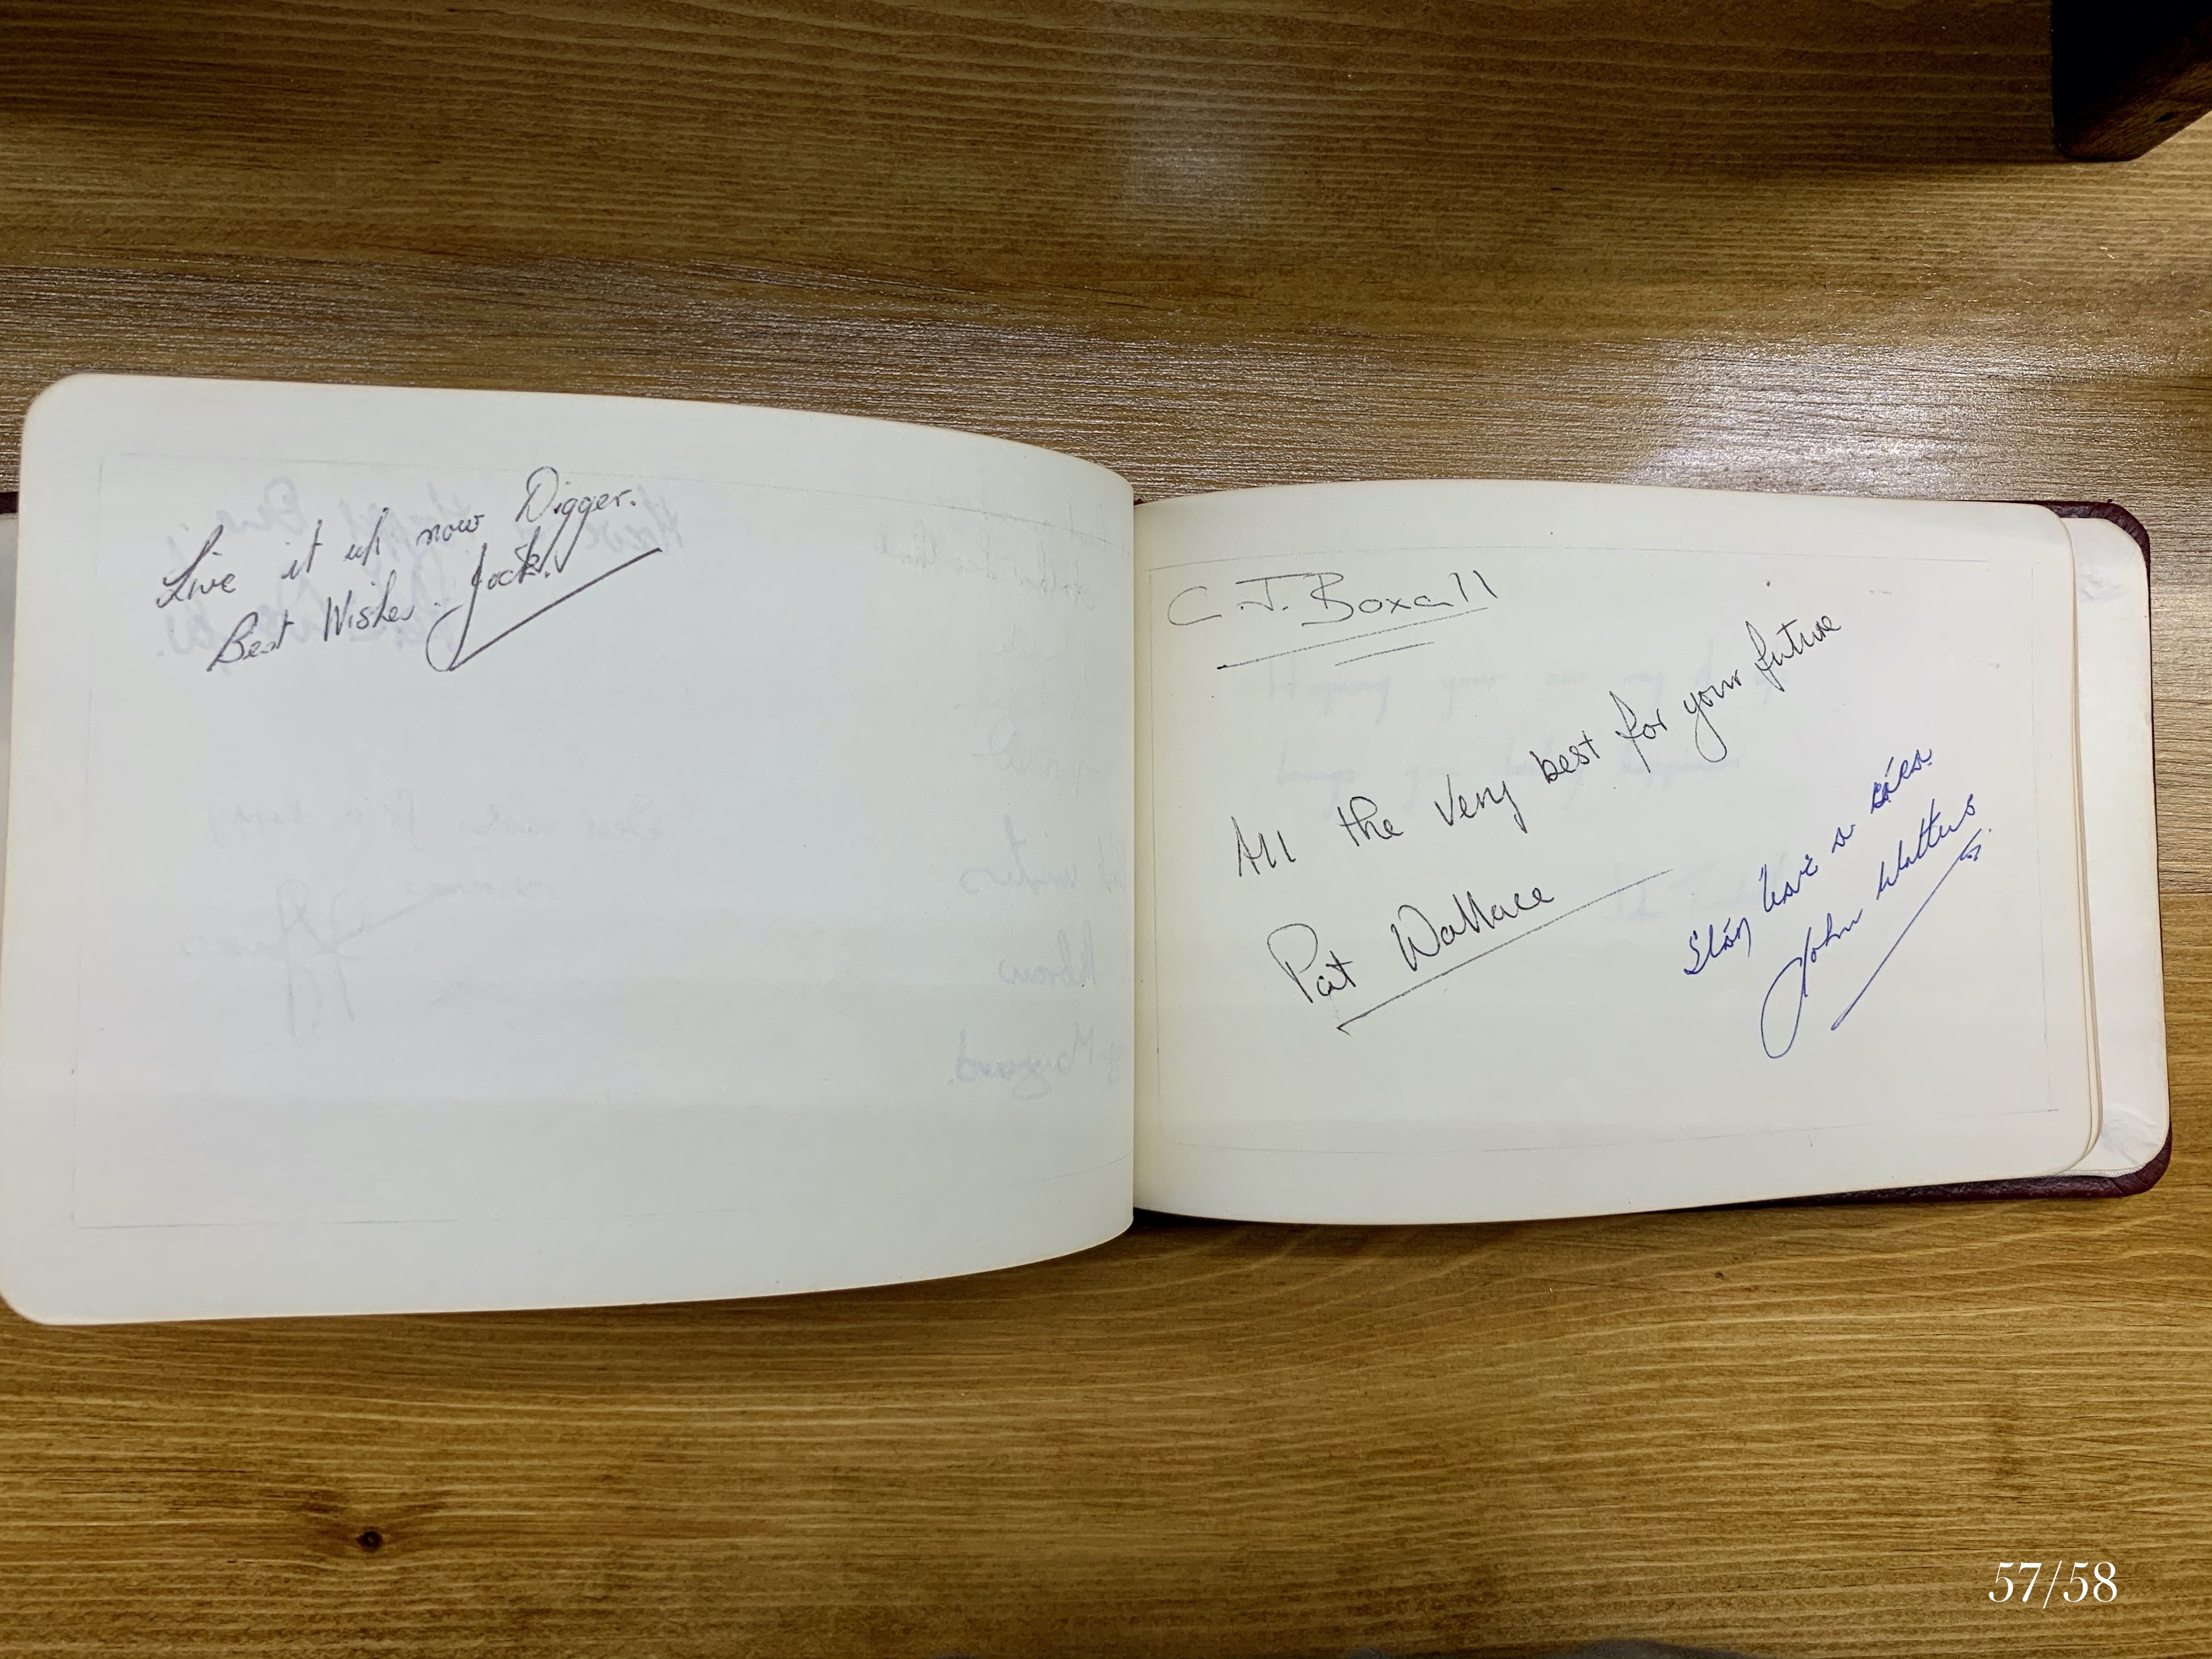 Live it up now Digger.
Best Wishes. Jock.
C.J. Boxall
All the very best for your future
Pat Wallace
Slán
John Watters
57/58